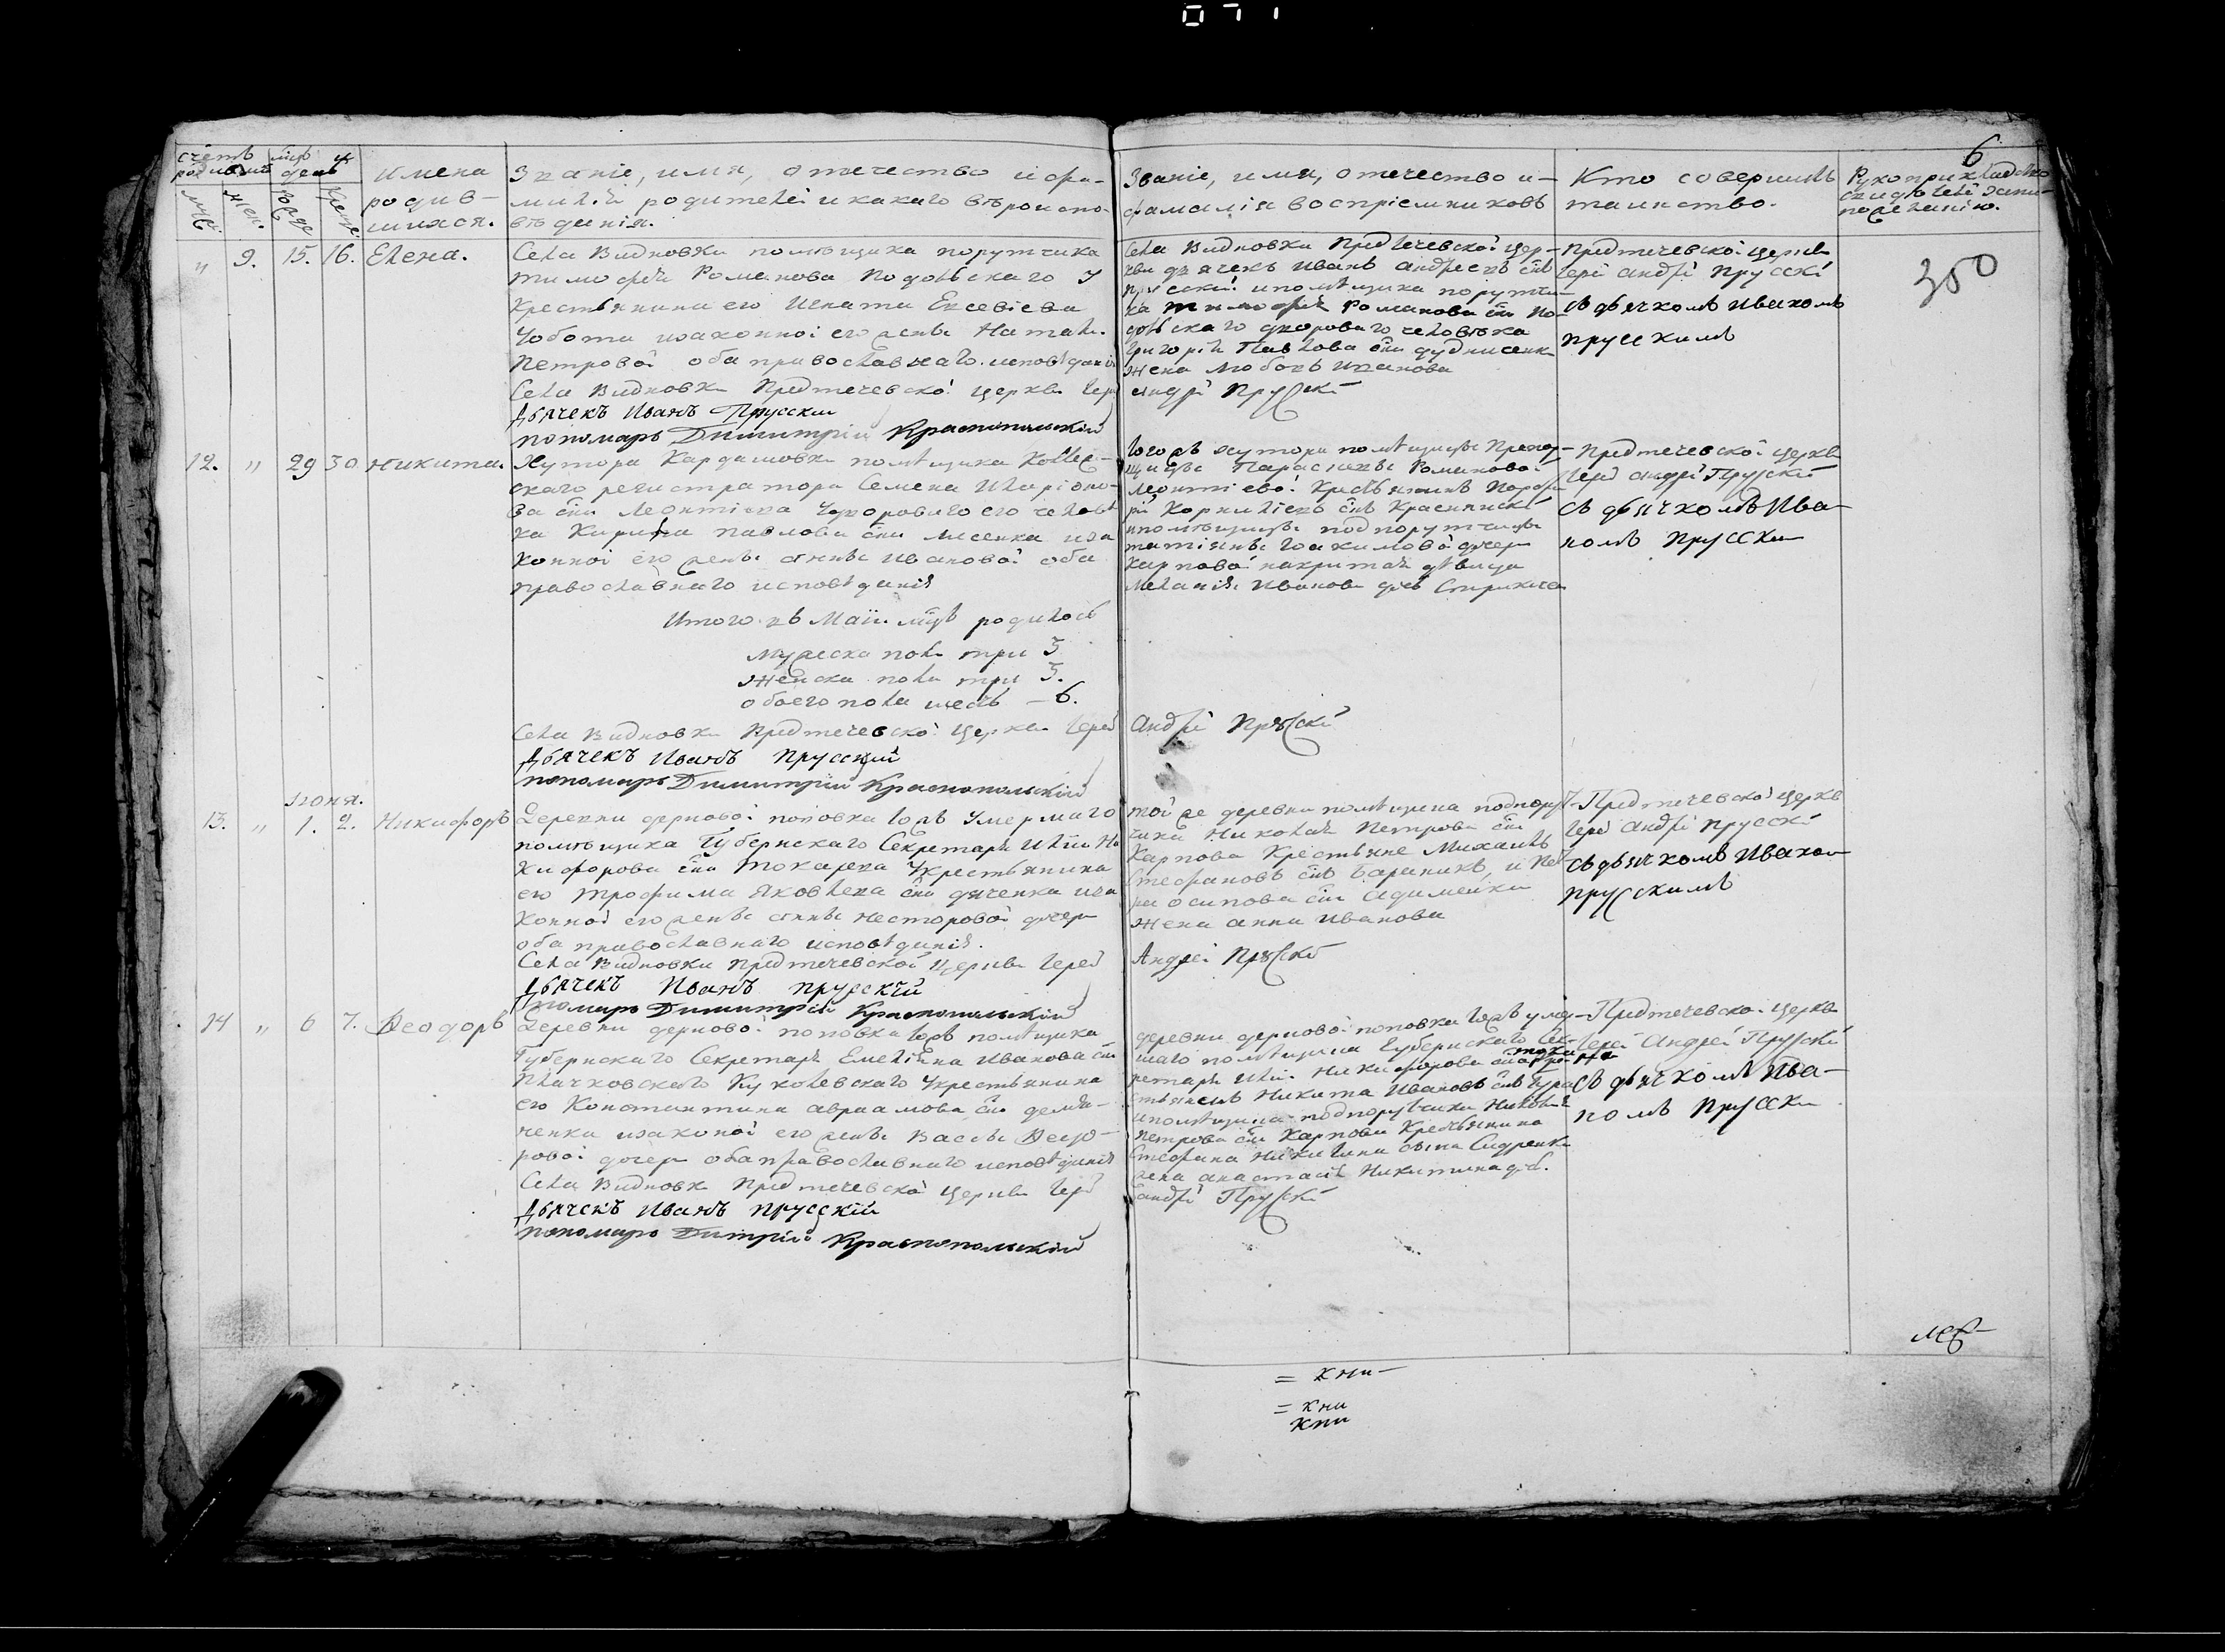 071
6
счетъ родившихся
мцъ и день
муж. жен.
рожд. крещ.
имена
родив-
шихся.
Званіе, имя, отечество и фа-
милій родителей и какаго вѣроиспо-
вѣданія.
Званіе, имя, отечество и-
фамилія воспріемниковъ
Кто совершилъ
таинство.
Рукоприкладство
свидѣтелей записи
по желанію.
" 9. 15. 16. Елена.
Села Видновки помѣщика порутчика
Тимофея Романова Подольскаго у
крестьянина его Игната Евсевіева
Чобота изаконной его жены Натали.
Петровой оба православнаго исповѣданія
Села Видновки Предтечевской церкви Іерей
Андрей Прускій
Дьячекъ Иванъ Прусскій
пономарь Димитрій Краснопольскій
Села Видновки Предтечевской цер-
кви дьячекъ Иванъ Андреевъ снъ
прусскій ипомѣщика порутчи-
ка Тимофея Романова сна По-
дольскаго дворового человѣка
Григорія Павлова сна
жена Любовь Иванова
Предтечевской церкви
Іерей Андрей Прусскій
съ дьячкомъ Иваномъ
прусскимъ
350
12. " 29 30 Никита.
Хутора Кардашовки помѣщика Коллеж-
скаго регистратора Семена Иларіоно-
ва сна Леонтіева Удворового его человѣ
ка Кирила Павлова сна Лисенка иза
конной его жены Анны Ивановой оба
православнаго исповѣданія
Тогожъ хутора помѣщицы
Параскевы Романовой
Леонтіевой Крестьянинъ
Корниліевъ снъ
ипомѣщицы подпорутчицы
татіяны Іоакимовой дочери
Карповой дѣвица
Меланія Иванова дочь
Предтечевской церкви
Іерей Андрей Прусскій
съ дьячкомъ Ива-
номъ Прусским
Итого въ Маіи мцѣ родилось
мужеска пола три 3
женска пола три 3.
обоего пола шесть — 6.
Села Видновки Предтечевской Церкви Іерей
Андрей Прускій
Дьячекъ Иванъ Прусский
пономарь Димитрій Краснопольскій
Іюня.
13. " 1. 2. Никифоръ
Деревни дерновой поповки тожъ Умершаго
помѣщика Губернскаго Секретаря Иліи Ни
кифорова сна Токарева Укрестьянина
его Трофима Яковлева сна дяченка иза
конной его жены анны Несторовой дочери
оба православнаго исповѣданія.
Села Видновки Предтечевской Церкви Іерей
Андрей Прускій
Дьячекъ Иванъ прусскій
Пономарь Димитрій Краснопольскій
той же деревни помѣщика подпорут-
чика Николая Петрова сна
Карпова Крестьяне Михаилъ
Стефановъ снъ Бараникъ, и Пет
ра Осипова сна
жена анна Иванова
Предтечевской церкв
Іерей Андрей Прусскій
съ дьячкомъ Иваном
прусскимъ
14 " 6 7. Ѳеодоръ
Деревни дерновой поповки тожъ помѣщика
Губернскаго Секретаря Емеліяна Иванова сна
Плачковскаго Куколевскаго Укрестьянина
его Константина авраамова сна демья-
ненка изаконой его жены Вассы Ѳеодо-
ровой дочери оба православнаго исповѣданія
Села Видновки Предтечевской Церкви Іерей
Андрей Прускій
Дьячекъ Иванъ прусскій
пономарь Димтрій Краснопольскій
деревни дерновой поповки тожъ умер-
шаго помѣщика Губернскаго Сек-
ретаря Иліи Никифорова сна Токарева
Никита Ивановъ снъ
ипомѣщика подпорутчика Николая
петрова сна Карпова Крестьянина
Стефана Никитина сына Сидренка
жена анастасія Никитина доч.
Предтечевской церкви
Іерей Андрей Прускій
съ дьячкомъ Ива-
номъ Прусски
= кни-
= кни
кни